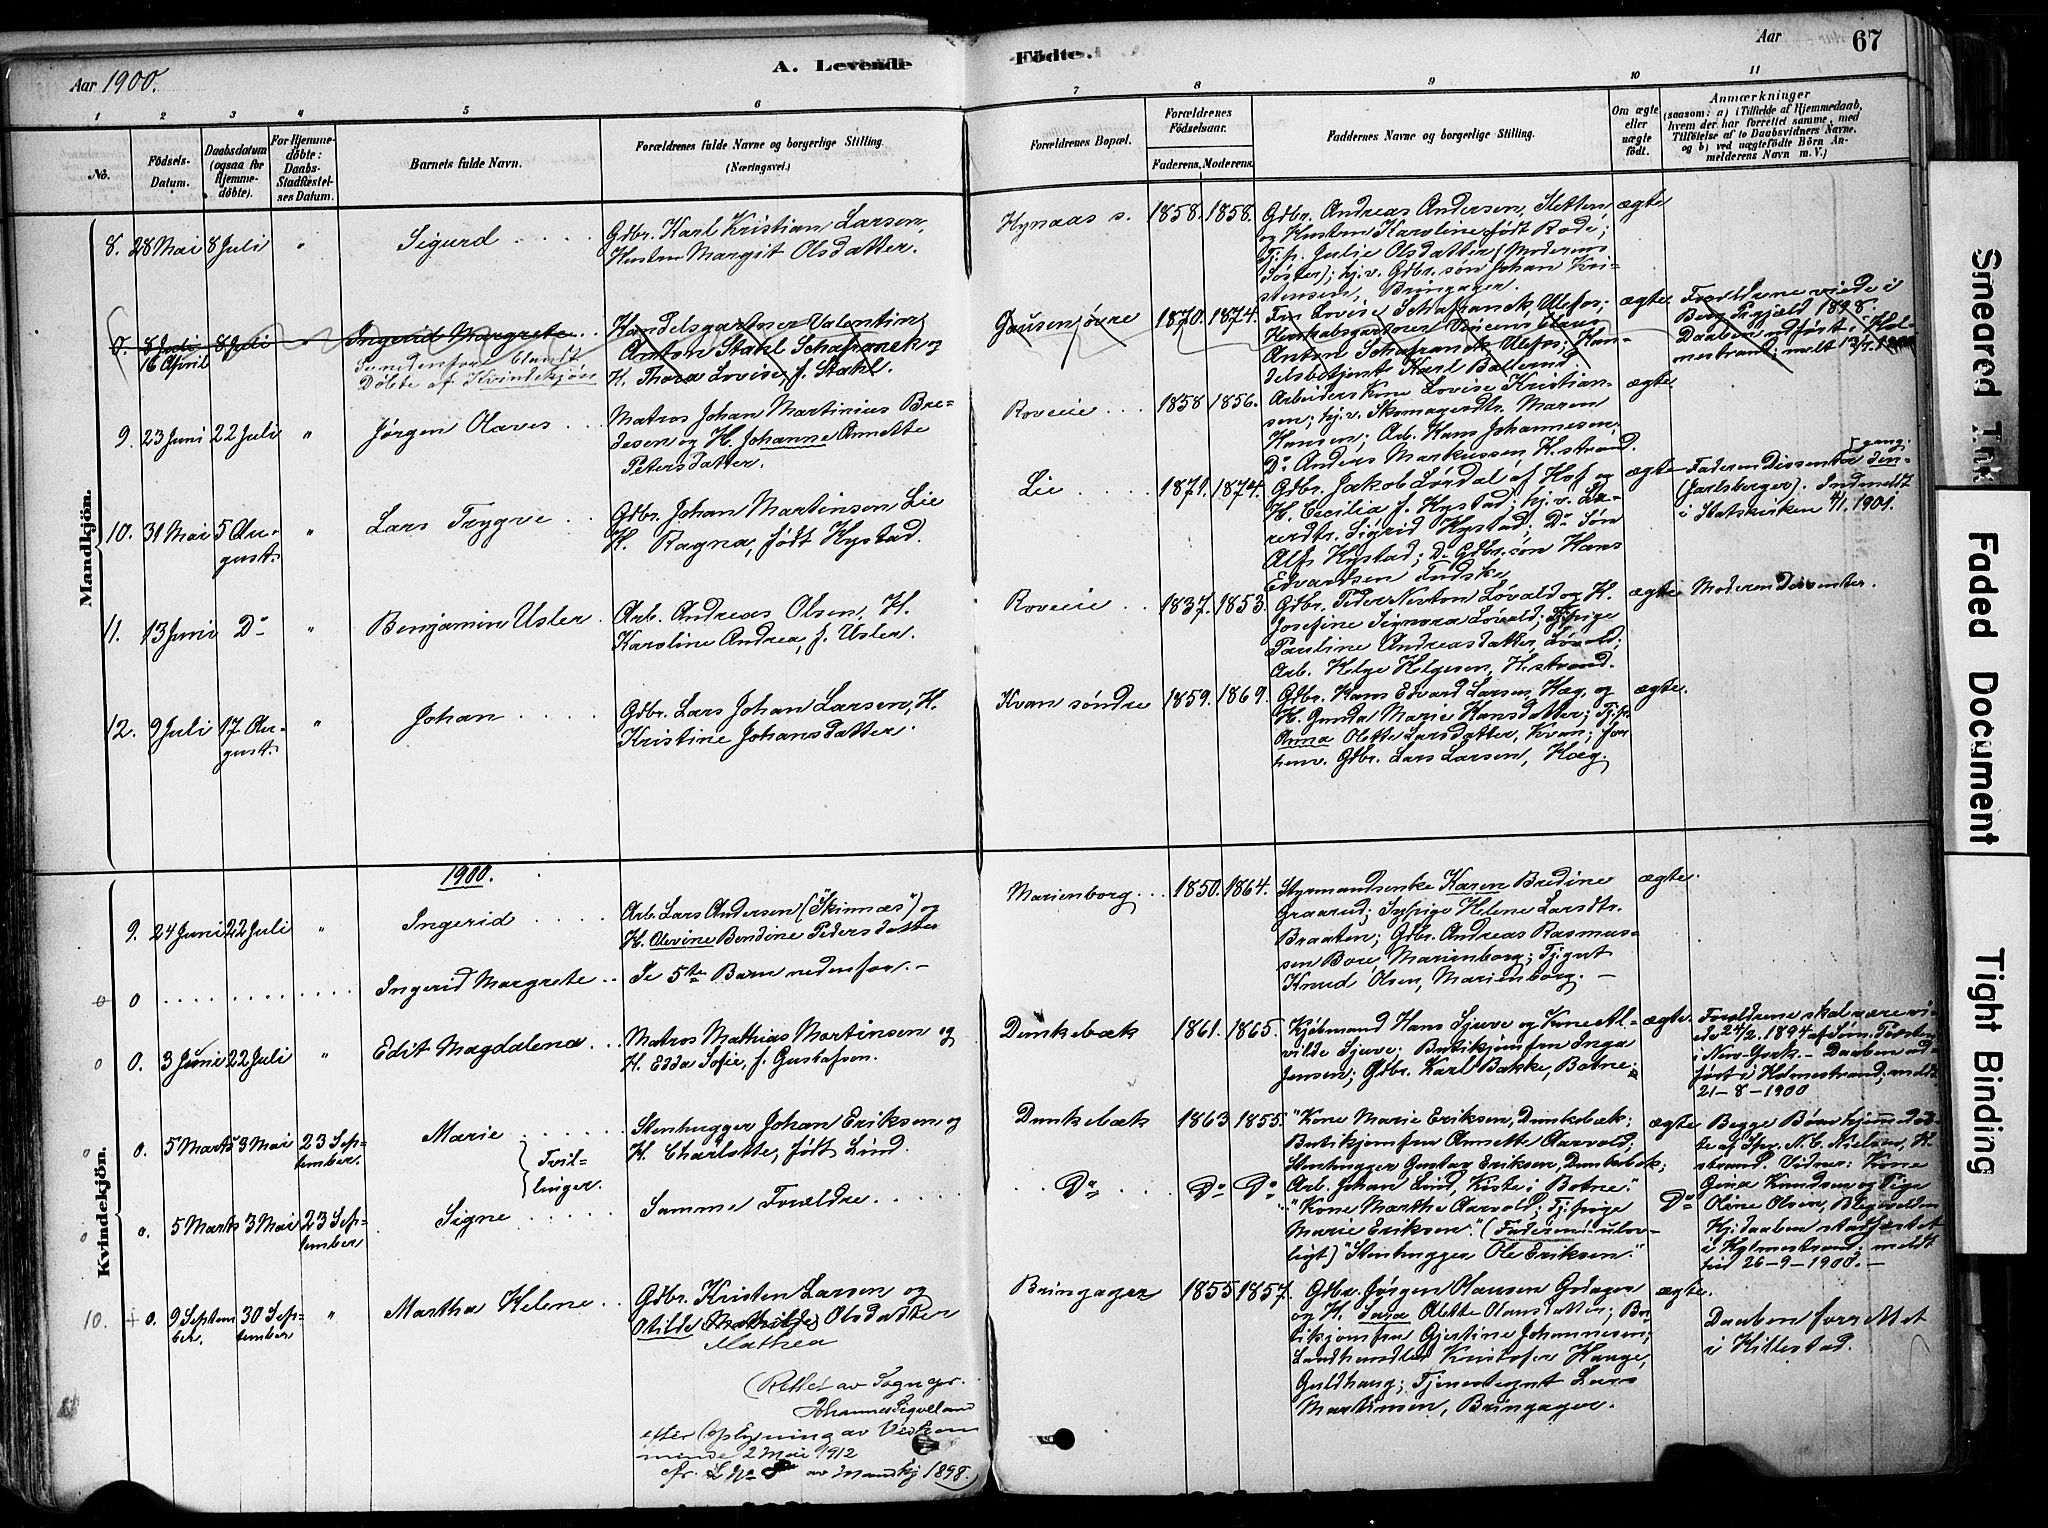 Aar 1900.
A. Levende
Födte.
Aar
67
1
2
3
4
5
6
7
8
9
10
11
No.
Födsels-
Datum.
Daabsdatum
(ogsaa for
Hjemme-
döbte).
For Hjemme-
döbte:
Daabs-
Stadfæstel-
ses Datum.
Barnets fulde Navn.
Forældrenes fulde Navne og borgerlige Stilling.
(Næringsvei.)
Forældrenes Bopæl.
Forældrenes
Födselsaar.
Faderens. Moderens.
Faddernes Navne og borgerlige Stilling.
Om ægte
eller
uægte
födt.
Anmærkninger
(saasom: a) i Tilfælde af Hjemmedaab,
hvem der har forrettet samme, med
Tilföielse af to Daabsvidners Navne,
og b) ved uægtefödte Börn An-
melderens Navn m. V.)
Mandkjön.
8. 28 Mai 8 Juli " Sigurd
Gdbr. Karl Kristian Larsen,
Hustru Margit Olsdatter.
Hynaas s. 1858. 1858.
Gdbr. Andreas Andersen, Sletten,
og Hustru Karoline født Bode;
Tj.p. Julie Olsdatter (Moderens
Søster); hj.v. Gdbr. søn Johan Kri-
stensen, Bringager.
ægte
0. 8 Juli 8 Juli " Ingerid Margrete
16 April
Se nedenfor blandt
Døbte af Kvindekjøn
Handelsgartner Valentin
Anton Stahl Schafranek og
H. Thora Lovise, f. Stahl.
Gausen øvre 1870. 1874.
Frk Lovise Schafranek, Ulefos;
Anton Schafranek Ulefos; Han-
delsbetjent Karl Ballerud
ægte
Forældrene viede i
1898.
Daaben indført i Hol-
mestrand; meldt 13/7 1900
9. 23 Juni 22 Juli " Jørgen Olaves
Matros Johan Martinius Bre-
desen og H. Johanne Annette
Petersdatter.
Roveie 1858 1856.
Arbeiders Kone Lovise Kristian-
sen; hj.v. Skomagerdtr. Maren
Hansen; Arb. Hans Johannesen,
Do Anders Markussen, H.strand.
ægte
10. 31 Mai 5 Au-
gust. " Lars Trygve
Gdbr. Johan Martinsen Lie
H. Ragna, født Hystad.
Lie 1871. 1874.
Gdbr. Jakob Lørdal af Hof og
H. Cecilia f. Hystad; hj.v. Læ-
rerdtr. Sigrid Hystad; Do Søn
Alf Hystad; Do Gdbr. søn Hans
Edvardsen Fuske
ægte
Faderen Dissenter den-
gang.
(Jarlsberger). Indmeldt
i Statskirken 4/1 1901.
11. 13 Juni Do " Benjamin Usler
Arb. Andreas Olsen, H.
Karoline Andrea, f. Usler.
Roveie 1837. 1853.
Gdbr. Peder Newton Løvald og H.
Josefine Signora Løvald; Tj.pige
Pauline Andreasdatter, Løvald;
Arb. Helge Helgesen, H.strand.
ægte
Moderen Dissenter.
12. 9 Juli 17 Au-
gust. " Johan
Gdbr. Lars Johan Larsen, H.
Kristine Johansdatter.
Kvan søndre 1859. 1869.
Gdbr. Hans Edvard Larsen, Hæg, og
H. Gunda Marie Hansdatter; Tj.p.
Anna Olette Larsdatter, Kvan; for
henv. Gdbr. Lars Larsen, Hæg.
ægte.
Kvindekjön.
1900.
9. 24 Juni 22 Juli " Ingerid
Arb. Lars Andersen ("Skinnæs") og
H. Olevine Bendine Pedersdatter
Marienborg 1850. 1864.
Styrmandsenke Karen Bredine
Graarud; Sypige Helene Larsdtr.
Braaten; Gdbr. Andreas Rasmus-
sen Bore Marienborg; Tj.gut
Knud Olsen, Marienborg. —
ægte.
0 Ingerid Margrete
Se 5te Barn nedenfor. —
0. 3 Juni 22 Juli " Edit Magdalena
Matros Mathias Martinsen og
H. Edda Sofie, f. Gustafson.
Dunkebæk 1861. 1865.
Kjøbmand Hans Sjuve og Kone Al-
vilde Sjuve; Butikjomfru Inga
Jensen; Gdbr. Karl Bakke, Botne.
ægte.
Forældrene skal være vi-
ede 24/2. 1894 af Søm.Præsten
i New-York. — Daaben ud-
ført i Holmestrand; meldt
21-8-1900
0. 5 Marts 3 Mai 23 Sep-
tember. Marie
Tvil-
linger.
Stenhugger Johan Eriksen og
H. Charlotte, født Lind.
Dunkebæk 1863 1855.
"Kone Marie Eriksen, Dunkebæk;
Butikjomfru Annette Aarvold,
Stenhugger Gustav Eriksen, Dunkebæk;
Arb. Johan Lind, Kiste i Botne."
ægte
Begge Børn hjemmedøb-
te af Spr. N. C. Nielsen, H.
strand. Vidner: Kone
Gina Knudsen og Pige
Oline Olsen, Blegevolden
Hj.daaben stadfæstet
i Holmestrand; meldt
hid 26-9-1900. —
0. 5 Marts 3 Mai 23 Sep-
tember Signe
Samme Forældre
Do Do Do
"Kone Marthe Aarvold; Tj.pige
Marie Eriksen." (Faderen! ulov-
ligt) "Stenhugger Ole Eriksen."
Do
10. + 0. 9 Septem-
ber. 30 Sep-
tember " Martha Helene
Gdbr. Kristen Larsen og
Otilde Mathilde Olsdatter
Mathea
Bringager 1855 1857.
Gdbr. Jørgen Olausen Godager
og H. Sara Olette Olausdatter; Bu-
tikjomfru Gjertine Johannesen;
Landhandler Kristofer Hauge,
Guldhaug; Tjenestegut Lars
Martinsen, Bringager.
ægte.
Daaben forrettet
i Hillestad.
(Rettet av Sognepr.
Johannes Sigveland
efter Oplysning av Vedkom
mende 2 Mai 1912
cfr. L No 8 av Mandkj 1898.)
Smeared Ink
Faded Document
Tight Binding